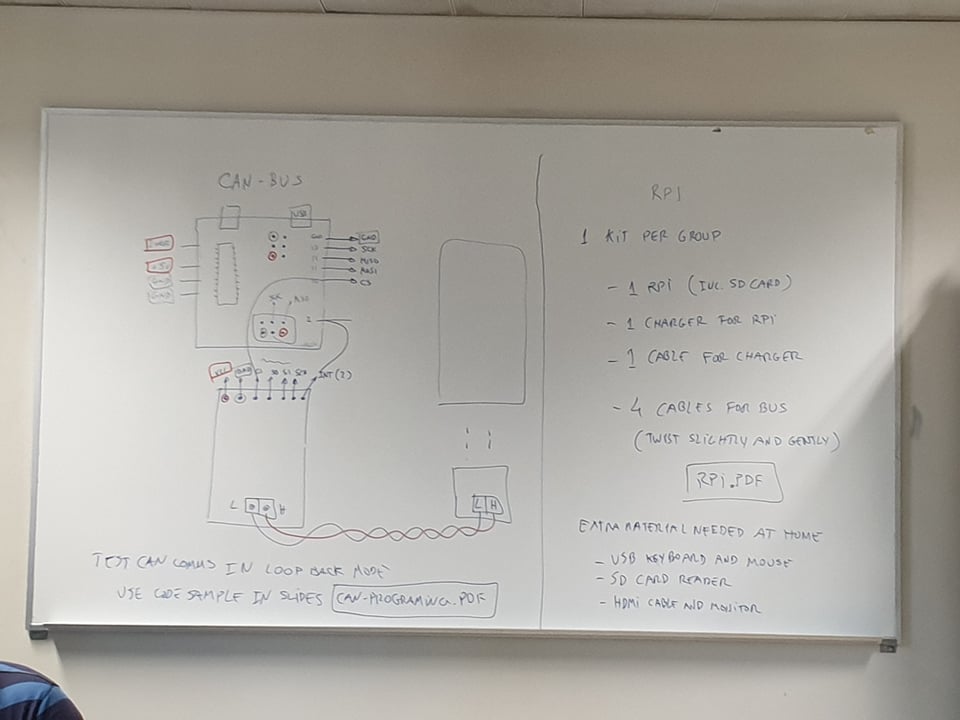 CAN-BUS
USB
GND
SCK
MISO
MOSI
CS
+5V
GND
GND
SCK
MISO
2
VCC GND CS SO SI SCK INT(2)
L H
L H
TEST CAN COMMS IN LOOP BACK MODE
USE CODE SAMPLE IN SLIDES CAN-PROGRAMING.PDF
RPI
1 KIT PER GROUP
- 1 RPI (INC. SD CARD)
- 1 CHARGER FOR RPI
- 1 CABLE FOR CHARGER
- 4 CABLES FOR BUS
(TWIST SLIGHTLY AND GENTLY)
RPI.PDF
EXTRA MATERIAL NEEDED AT HOME
- USB KEYBOARD AND MOUSE
- SD CARD READER
- HDMI CABLE AND MONITOR